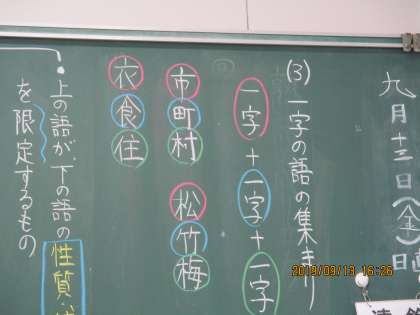 九月十三日(金)日直
(3) 一字の語の集まり
一字+一字+一字
市町村 松竹梅
衣食住
・上の語が、下の語の性質
を限定するもの
2019/09/13 16:26